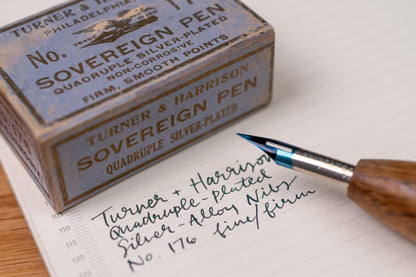 TURNER & HARRISON
PHILADELPHIA
No.
SOVEREIGN PEN
QUADRUPLE SILVER-PLATED
NON-CORROSIVE
FIRM, SMOOTH POINTS
TURNER & HARRISON
SOVEREIGN PEN
QUADRUPLE SILVER-PLATED
Turner + Harrison
Quadruple-Plated
Silver-Alloy Nibs
No. 176 fine/firm
110
115
120